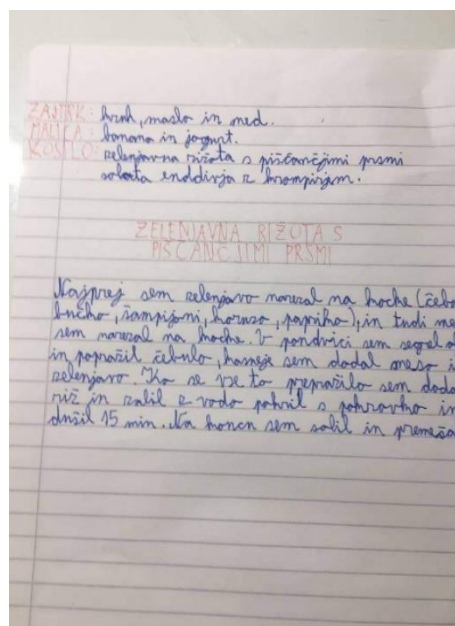 ZAJTRK: kruh, maslo in med.
MALICA: banana in jogurt.
KOSILO: zelenjavna rižota s piščančjimi prsmi
solata enddivja z krompirjem.
ZELENJAVNA RIŽOTA S
PIŠČANČJIMI PRSMI
Najprej sem zelenjavo narezal na kocke (čebu
bučko, šampinjoni, koruzo, papriko), in tudi me
sem narezal na kocke. V pondvici sem segrel ol
in popražil čebulo, kasneje sem dodal meso i
zelenjavo. Ko se vse to prepražilo sem doda
riž in zalil z vodo pokril s pokrovko in
dušil 15 min. Na koncu sem solil in premeša